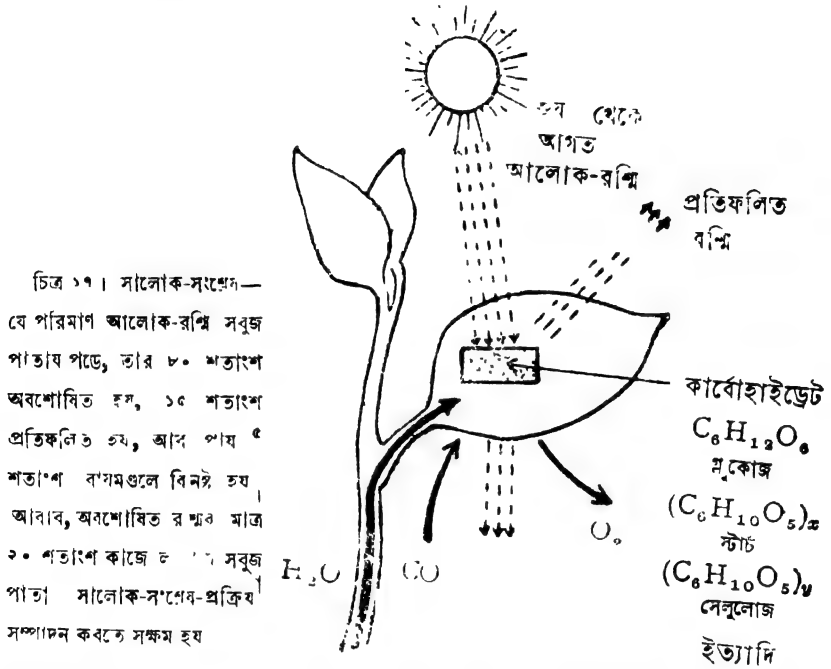 থেকে
আগত
আলোক-রশ্মি
প্রতিফলিত
রশ্মি
চিত্র ১৭। সালোক-সংশ্লেষ—
যে পরিমাণ আলোক-রশ্মি সবুজ
পাতায় পড়ে, তার ৮০ শতাংশ
অবশোষিত হয়, ১৫ শতাংশ
প্রতিফলিত হয়, আর প্রায় ৫
শতাংশ বায়ুমণ্ডলে বিনষ্ট হয়।
আবার, অবশোষিত রশ্মির মাত্র
২০ শতাংশ কাজে সবুজ
পাতা সালোক-সংশ্লেষ-প্রক্রিয়া
সম্পাদন করতে সক্ষম হয়
কার্বোহাইড্রেট
C₆H₁₂O₆
গ্লুকোজ
(C₆H₁₀O₅)ₓ
স্টার্চ
(C₆H₁₀O₅)y
সেলুলোজ
ইত্যাদি
H₂O
CO
O₂